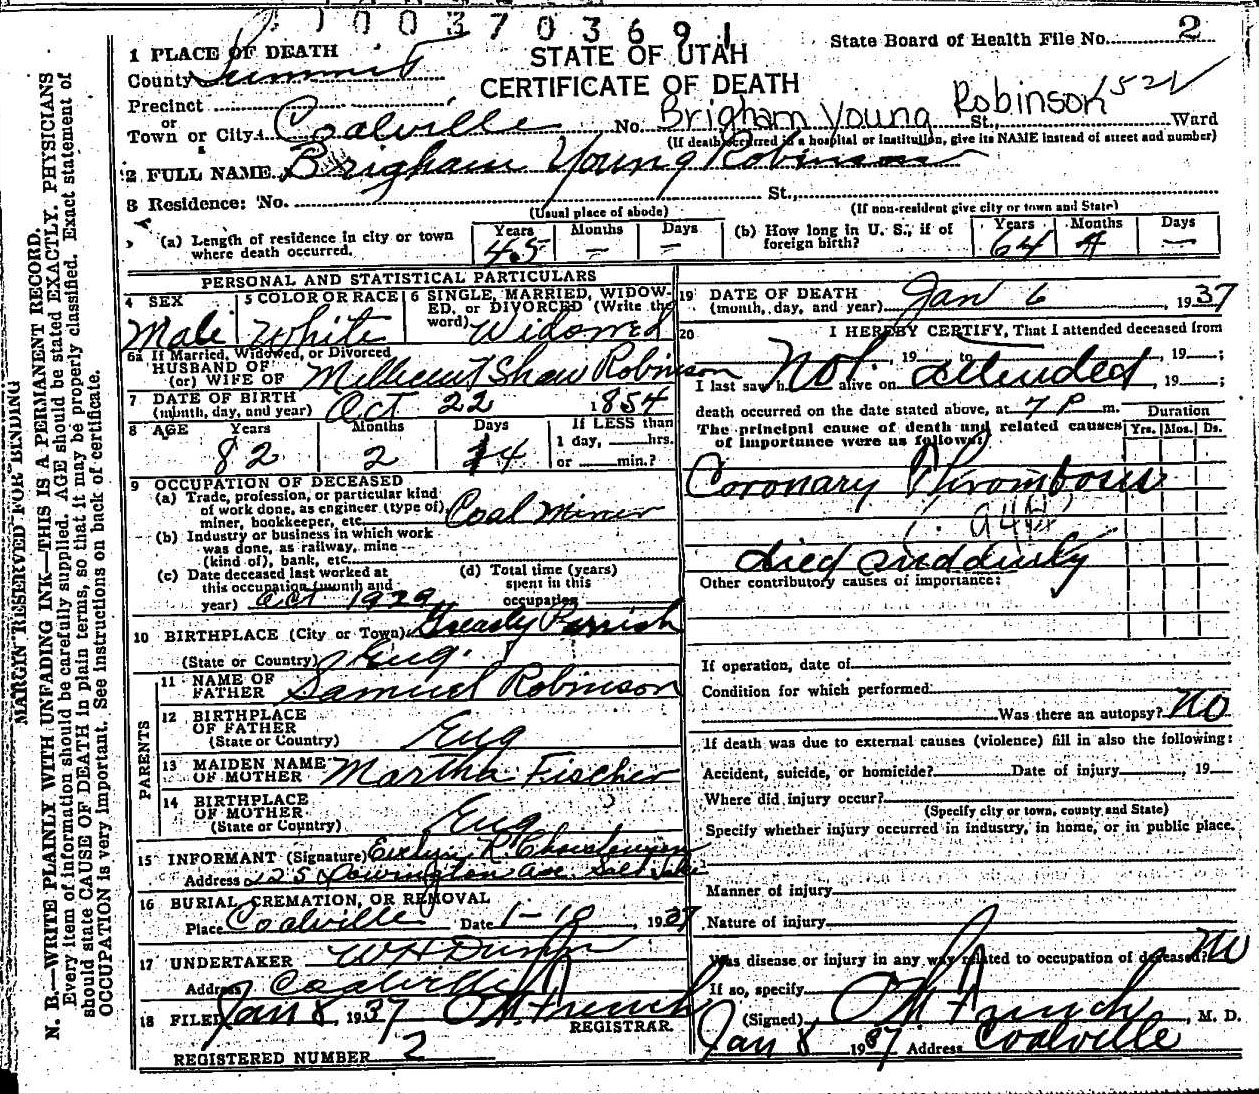 1003703691
2
STATE OF UTAH
State Board of Health File No.
CERTIFICATE OF DEATH
1 PLACE OF DEATH
County Summit
Precinct
or
Town or City Coalville No. Brigham Young Robinson St. Ward
1521
(If death occurred in a hospital or institution, give its NAME instead of street and number)
2 FULL NAME Brigham Young Robinson
3 Residence: No. St.,
(Usual place of abode) (If non-resident give city or town and State)
(a) Length of residence in city or town where death occurred. Years 45 Months — Days —
(b) How long in U. S., if of foreign birth? Years 64 Months Days —
PERSONAL AND STATISTICAL PARTICULARS
4 SEX Male
5 COLOR OR RACE White
6 SINGLE, MARRIED, WIDOWED, or DIVORCED (Write the word) Widowed
6a If Married, Widowed, or Divorced
HUSBAND OF
(or) WIFE OF Millicent Shaw Robinson
7 DATE OF BIRTH
(month, day, and year) Oct 22 1854
8 AGE Years 82 Months 2 Days 14
If LESS than
1 day, hrs.
or min.?
9 OCCUPATION OF DECEASED
(a) Trade, profession, or particular kind
of work done, as engineer (type of)
miner, bookkeeper, etc. Coal Miner
(b) Industry or business in which work
was done, as railway, mine
(kind of), bank, etc.
(c) Date deceased last worked at
this occupation (month and
year) Oct 1929
(d) Total time (years)
spent in this
occupation
10 BIRTHPLACE (City or Town) Greasly Parrish
(State or Country) Eng.
PARENTS
11 NAME OF
FATHER Samuel Robinson
12 BIRTHPLACE
OF FATHER
(State or Country) Eng
13 MAIDEN NAME
OF MOTHER Martha Fischer
14 BIRTHPLACE
OF MOTHER
(State or Country) Eng
15 INFORMANT (Signature) Evelyn R.
Address Ave Salt Lake
16 BURIAL, CREMATION, OR REMOVAL
Place Coalville Date 1-10 1937
17 UNDERTAKER W H
Address Coalville
18 FILED Jan 8, 1937 O M French
REGISTRAR.
REGISTERED NUMBER 2
19 DATE OF DEATH
(month, day, and year) Jan 6 1937
20 I HEREBY CERTIFY, That I attended deceased from
Not, 19 to attended, 19 ;
I last saw h alive on , 19 ;
death occurred on the date stated above, at 7 P m.
The principal cause of death and related causes
of importance were as follows:
Duration
Yrs. Mos. Ds.
Coronary Thrombosis
died suddenly
Other contributory causes of importance:
If operation, date of
Condition for which performed
Was there an autopsy? No
If death was due to external causes (violence) fill in also the following:
Accident, suicide, or homicide? Date of injury , 19
Where did injury occur?
(Specify city or town, county and State)
Specify whether injury occurred in industry, in home, or in public place.
Manner of injury
Nature of injury
Was disease or injury in any way related to occupation of deceased? No
If so, specify
(Signed) O M French, M. D.
Jan 8 1937 Address Coalville
MARGIN RESERVED FOR BINDING
N. B.—WRITE PLAINLY WITH UNFADING INK—THIS IS A PERMANENT RECORD.
Every item of information should be carefully supplied. AGE should be stated EXACTLY. PHYSICIANS
should state CAUSE OF DEATH in plain terms, so that it may be properly classified. Exact statement of
OCCUPATION is very important. See instructions on back of certificate.